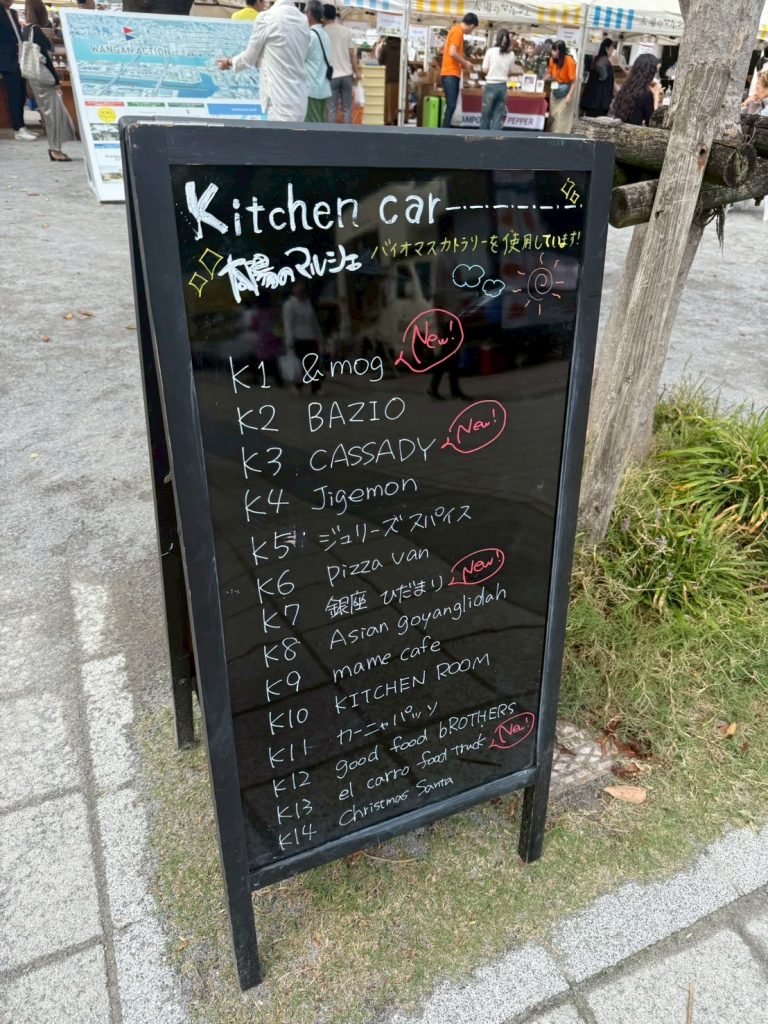 WANGAN ACTION
太陽のマルシェ
PEPPER
Kitchen car
太陽のマルシェ バイオマスカトラリーを使用しています!
K1 &mog New!
K2 BAZIO
K3 CASSADY New!
K4 Jigemon
K5 ジュリーズスパイス
K6 Pizza van
K7 銀座 ひだまり New!
K8 Asian goyanglidah
K9 mame cafe
K10 KITCHEN ROOM
K11 カーニャパッツ
K12 good food bROTHERS
K13 el carro food truck New!
K14 Christmas Santa